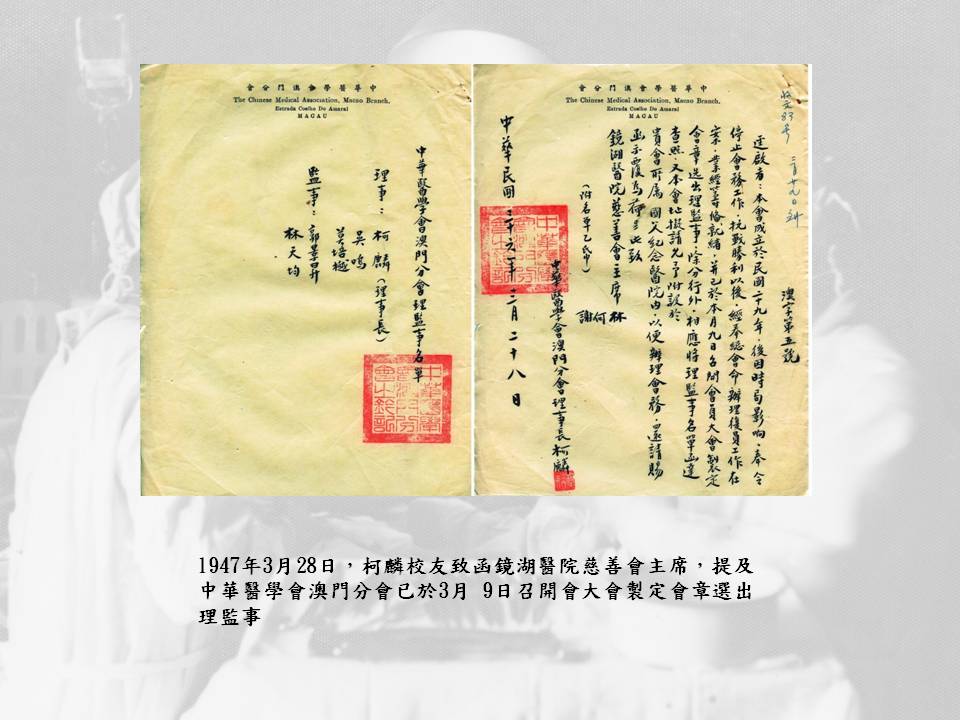 會分門澳會學醫華中
The Chinese Medical Association, Macao Branch.
Estrada Coelho Do Amaral
MACAU
中華醫學會澳門分會理監事名單
理事：柯麟（理事長）
吳鳴
監事：郭景昇
林天均
會分門澳會學醫華中
The Chinese Medical Association, Macao Branch.
Estrada Coelho Do Amaral
MACAU
收文83號
澳字第五號
逕啟者：本會成立於民國二十九年，後因時局影响，奉令
停止會務工作，抗戰勝利以後，經奉總會命辦理復員工作在
案，業經籌備就緒，并已於本月九日召開會員大會製定
會章選出理監事，除分行外，相應將理監事名單函達
查照，又本會地址擬請允予附設於
貴會所屬國父紀念醫院內，以便辦理會務，還請賜
鏡湖醫院慈善會主席
林
何
謝
中華醫學會澳門分會理事長柯麟
中華民國三十六年三月二十八日
1947年3月28日，柯麟校友致函鏡湖醫院慈善會主席，提及
中華醫學會澳門分會已於3月 9日召開會大會製定會章選出
理監事